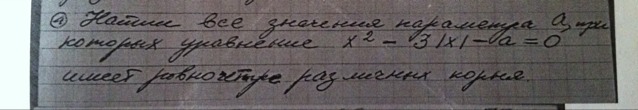 а) Найти все значения параметра a, при
которых уравнение x² - 3|x| - a = 0
имеет ровно четре различных корня.